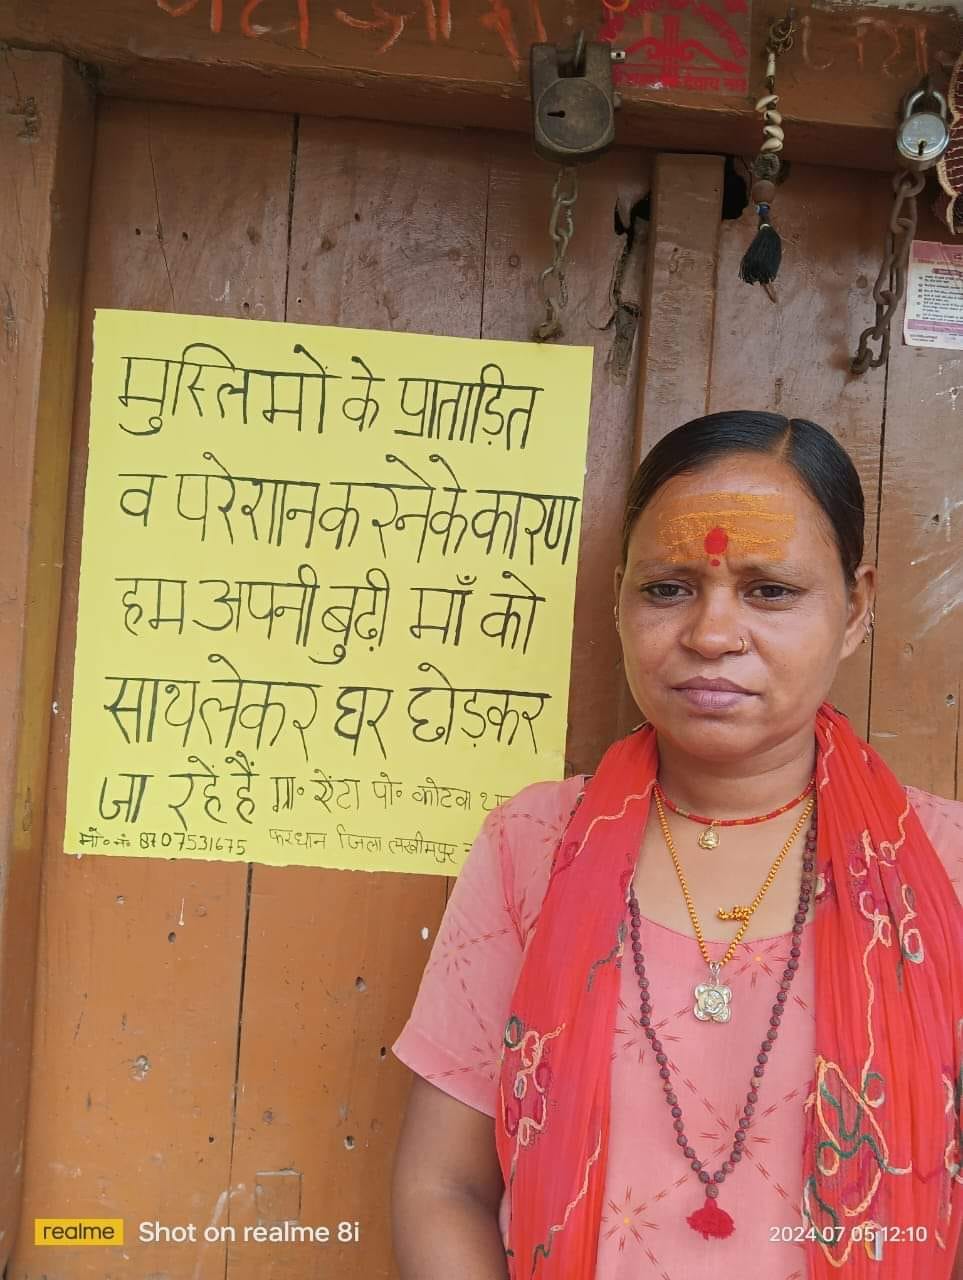 मुस्लिमों के प्रताड़ित
व परेशान करने के कारण
हम अपनी बुढ़ी माँ को
साथ लेकर घर छोड़कर
जा रहें हैं ग्रा॰ सेंटा पो॰ कोटवा
मो॰ नं॰ 8707531675 फरधान जिला लखीमपुर
realme Shot on realme 8i
2024 07 05 12:10